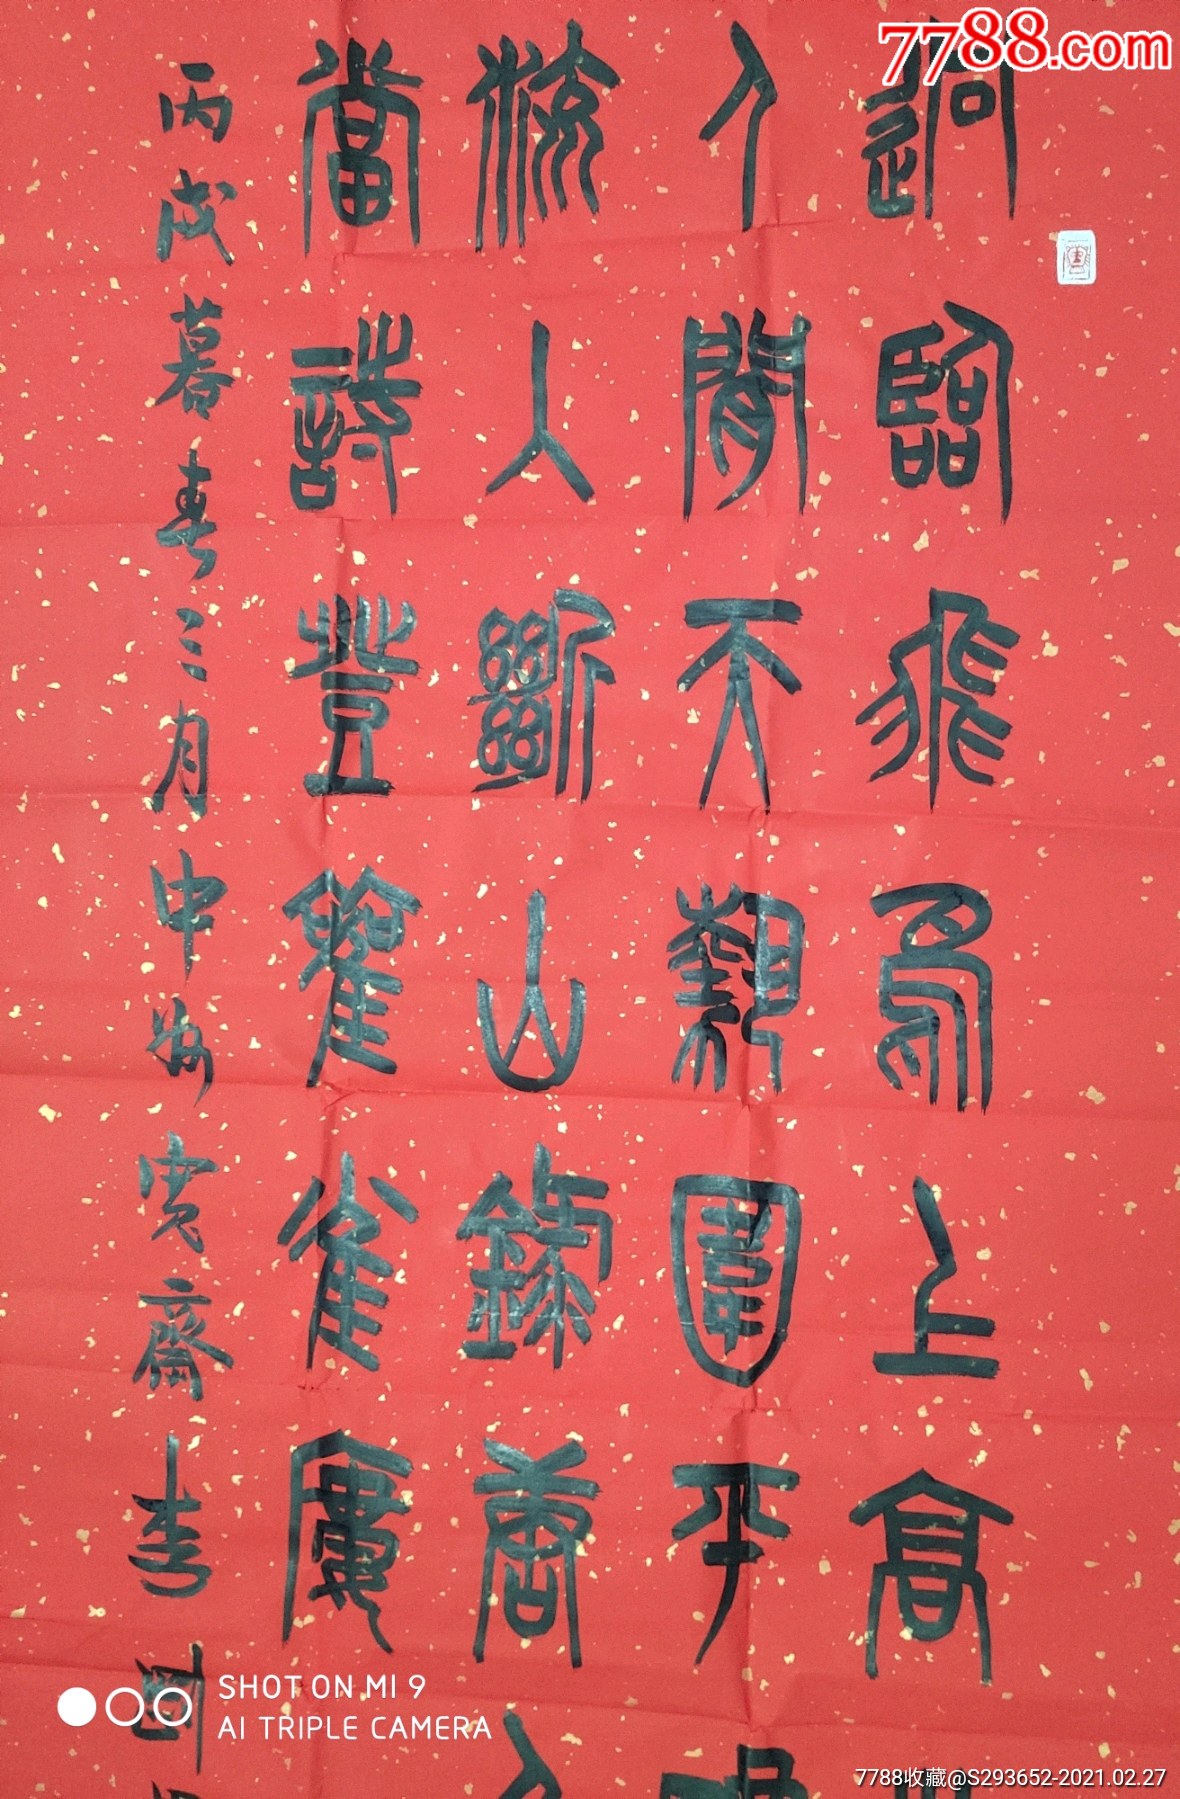 7788.com
迥臨飛鳥上高
人間天勢圍平
流入斷山錄唐人
當詩登雚雀廔
丙戌暮春三月中 齋李
SHOT ON MI 9
AI TRIPLE CAMERA
7788收藏@S293652-2021.02.27